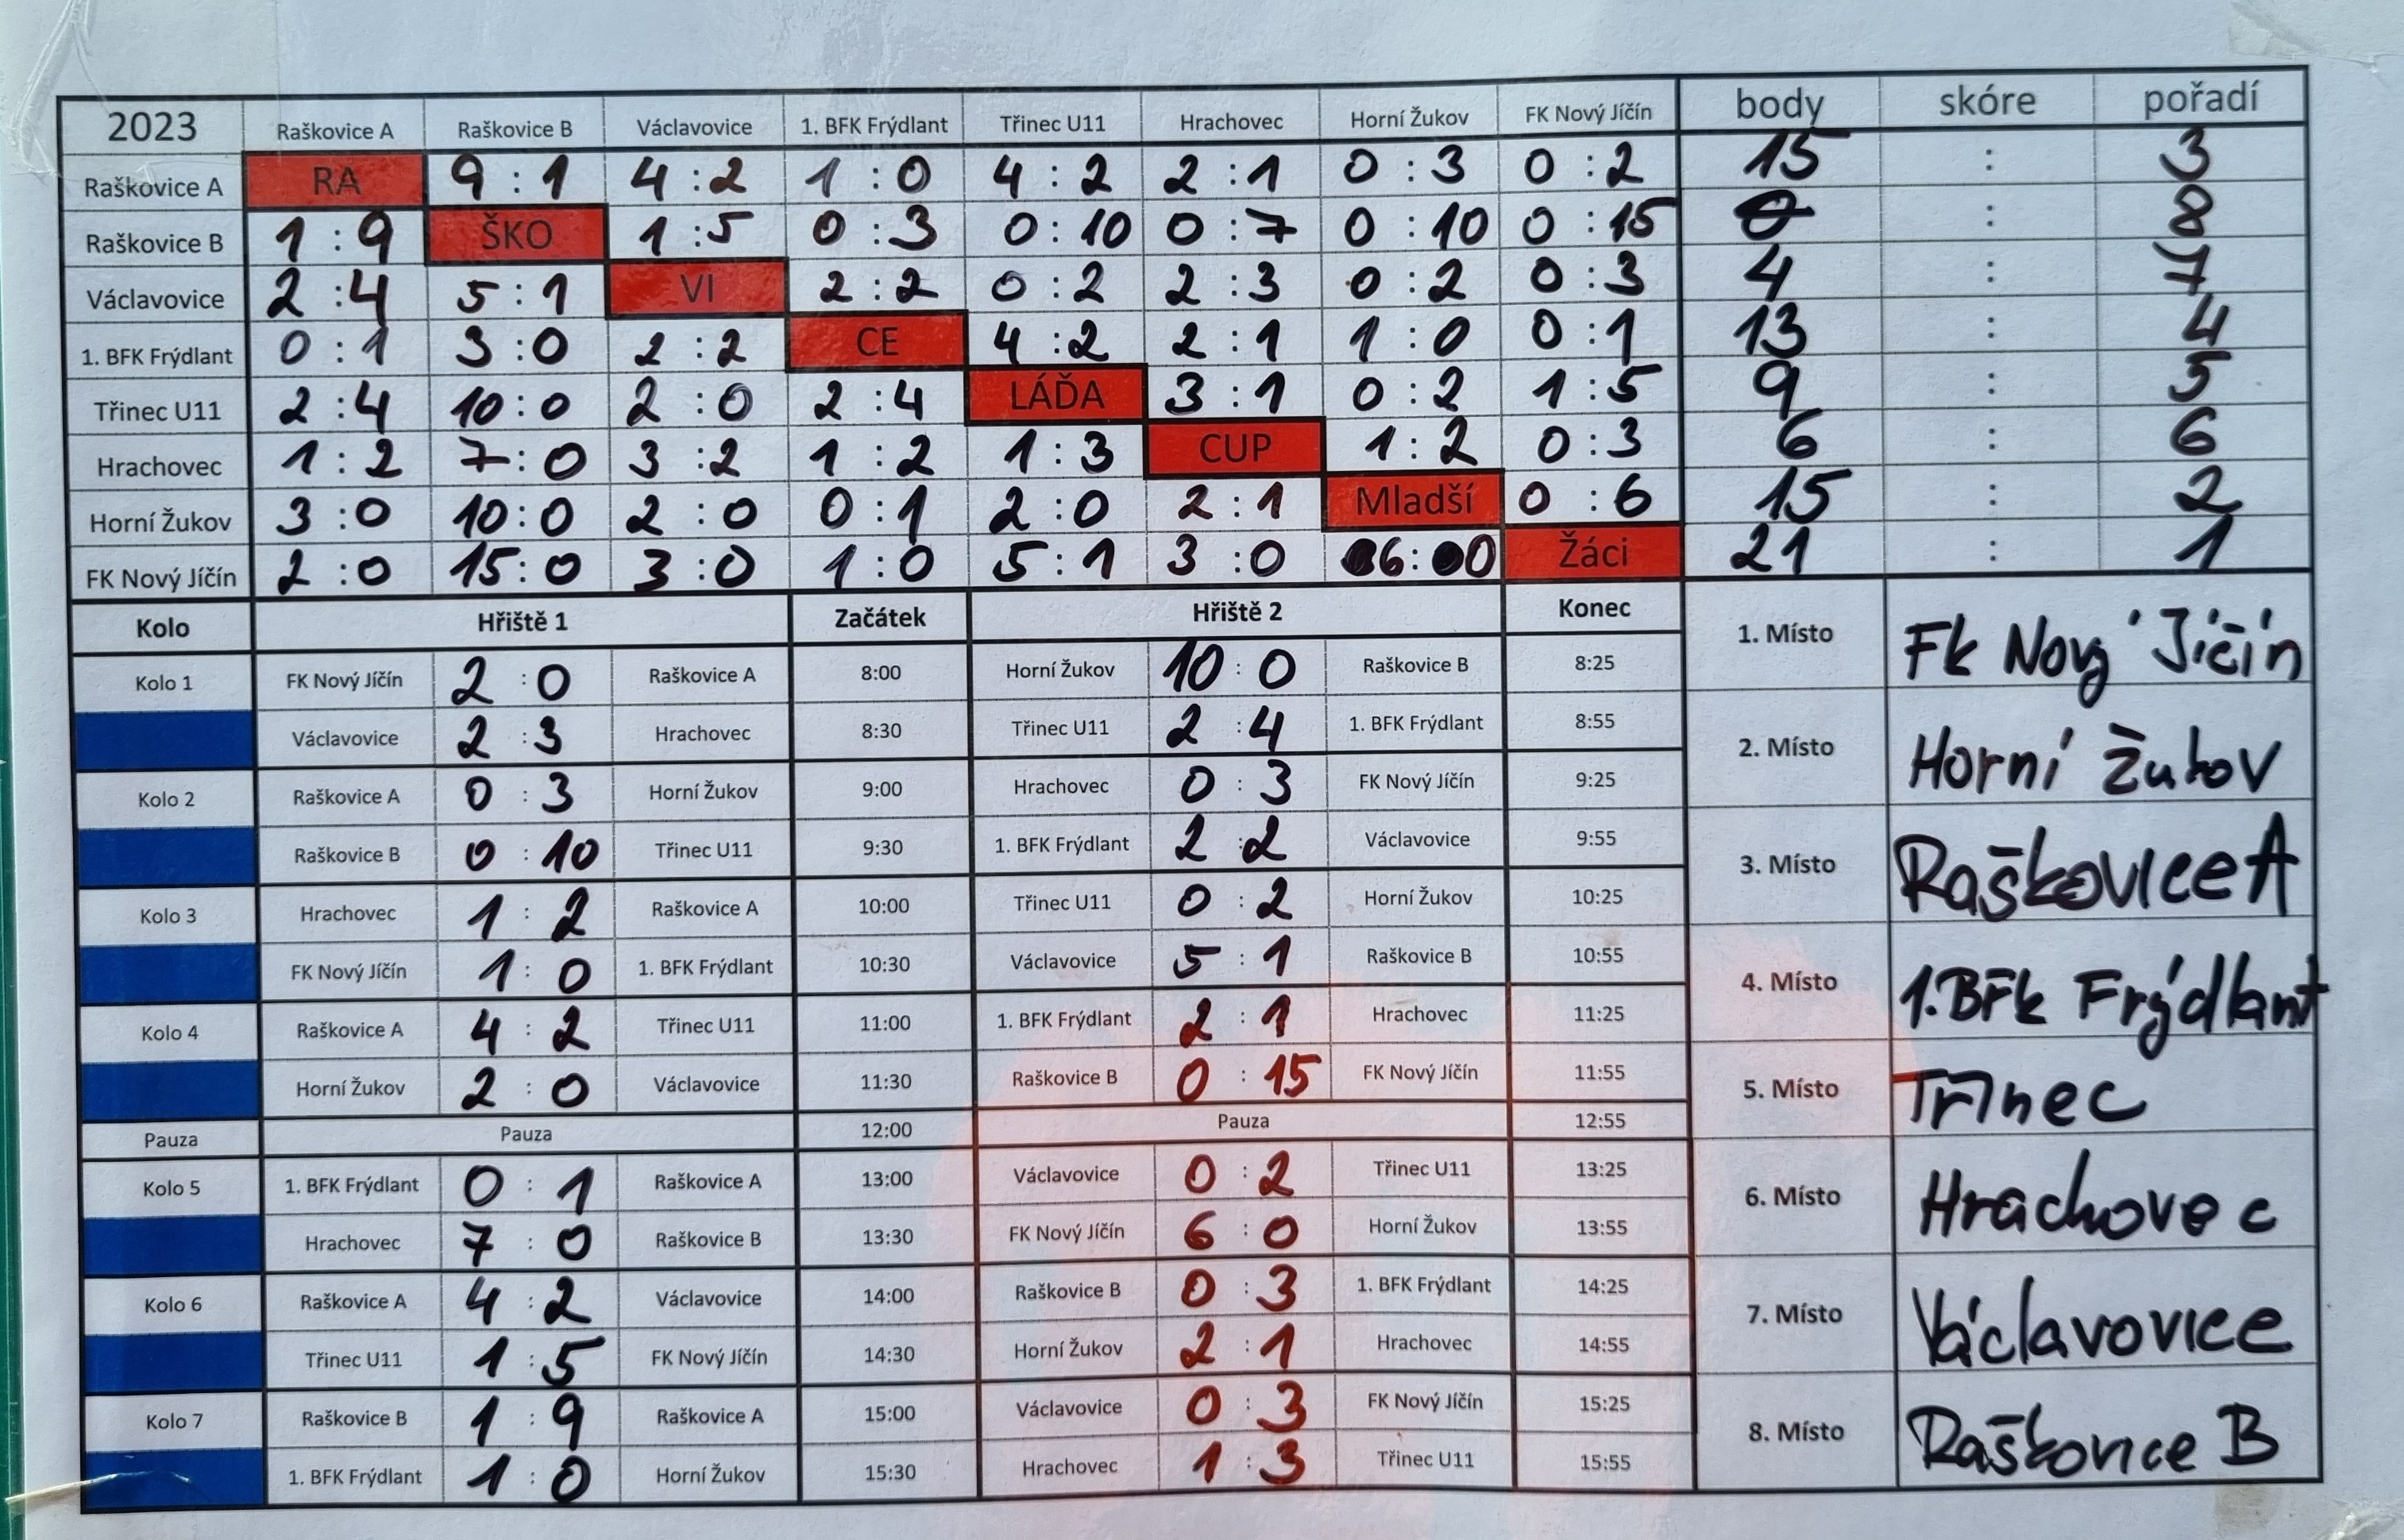 2023 Raškovice A Raškovice B Václavovice 1. BFK Frýdlant Třinec U11 Hrachovec Horní Žukov FK Nový Jíčín body skóre pořadí
Raškovice A RA 9 : 1 4 : 2 1 : 0 4 : 2 2 : 1 0 : 3 0 : 2 15 : 3
Raškovice B 1 : 9 ŠKO 1 : 5 0 : 3 0 : 10 0 : 7 0 : 10 0 : 15 0 : 8
Václavovice 2 : 4 5 : 1 VI 2 : 2 0 : 2 2 : 3 0 : 2 0 : 3 4 : 7
1. BFK Frýdlant 0 : 1 3 : 0 2 : 2 CE 4 : 2 2 : 1 1 : 0 0 : 1 13 : 4
Třinec U11 2 : 4 10 : 0 2 : 0 2 : 4 LÁĎA 3 : 1 0 : 2 1 : 5 9 : 5
Hrachovec 1 : 2 7 : 0 3 : 2 1 : 2 1 : 3 CUP 1 : 2 0 : 3 6 : 6
Horní Žukov 3 : 0 10 : 0 2 : 0 0 : 1 2 : 0 2 : 1 Mladší 0 : 6 15 : 2
FK Nový Jíčín 2 : 0 15 : 0 3 : 0 1 : 0 5 : 1 3 : 0 6 : 0 Žáci 21 : 1
Kolo Hřiště 1 Začátek Hřiště 2 Konec
Kolo 1 FK Nový Jíčín 2 : 0 Raškovice A 8:00 Horní Žukov 10 : 0 Raškovice B 8:25
Václavovice 2 : 3 Hrachovec 8:30 Třinec U11 2 : 4 1. BFK Frýdlant 8:55
Kolo 2 Raškovice A 0 : 3 Horní Žukov 9:00 Hrachovec 0 : 3 FK Nový Jíčín 9:25
Raškovice B 0 : 10 Třinec U11 9:30 1. BFK Frýdlant 2 : 2 Václavovice 9:55
Kolo 3 Hrachovec 1 : 2 Raškovice A 10:00 Třinec U11 0 : 2 Horní Žukov 10:25
FK Nový Jíčín 1 : 0 1. BFK Frýdlant 10:30 Václavovice 5 : 1 Raškovice B 10:55
Kolo 4 Raškovice A 4 : 2 Třinec U11 11:00 1. BFK Frýdlant 2 : 1 Hrachovec 11:25
Horní Žukov 2 : 0 Václavovice 11:30 Raškovice B 0 : 15 FK Nový Jíčín 11:55
Pauza Pauza 12:00 Pauza 12:55
Kolo 5 1. BFK Frýdlant 0 : 1 Raškovice A 13:00 Václavovice 0 : 2 Třinec U11 13:25
Hrachovec 7 : 0 Raškovice B 13:30 FK Nový Jíčín 6 : 0 Horní Žukov 13:55
Kolo 6 Raškovice A 4 : 2 Václavovice 14:00 Raškovice B 0 : 3 1. BFK Frýdlant 14:25
Třinec U11 1 : 5 FK Nový Jíčín 14:30 Horní Žukov 2 : 1 Hrachovec 14:55
Kolo 7 Raškovice B 1 : 9 Raškovice A 15:00 Václavovice 0 : 3 FK Nový Jíčín 15:25
1. BFK Frýdlant 1 : 0 Horní Žukov 15:30 Hrachovec 1 : 3 Třinec U11 15:55
1. Místo Fk Nový Jíčín
2. Místo Horní Žukov
3. Místo Raškovice A
4. Místo 1.BFk Frýdlant
5. Místo Třinec
6. Místo Hrachovec
7. Místo Václavovice
8. Místo Raškovice B